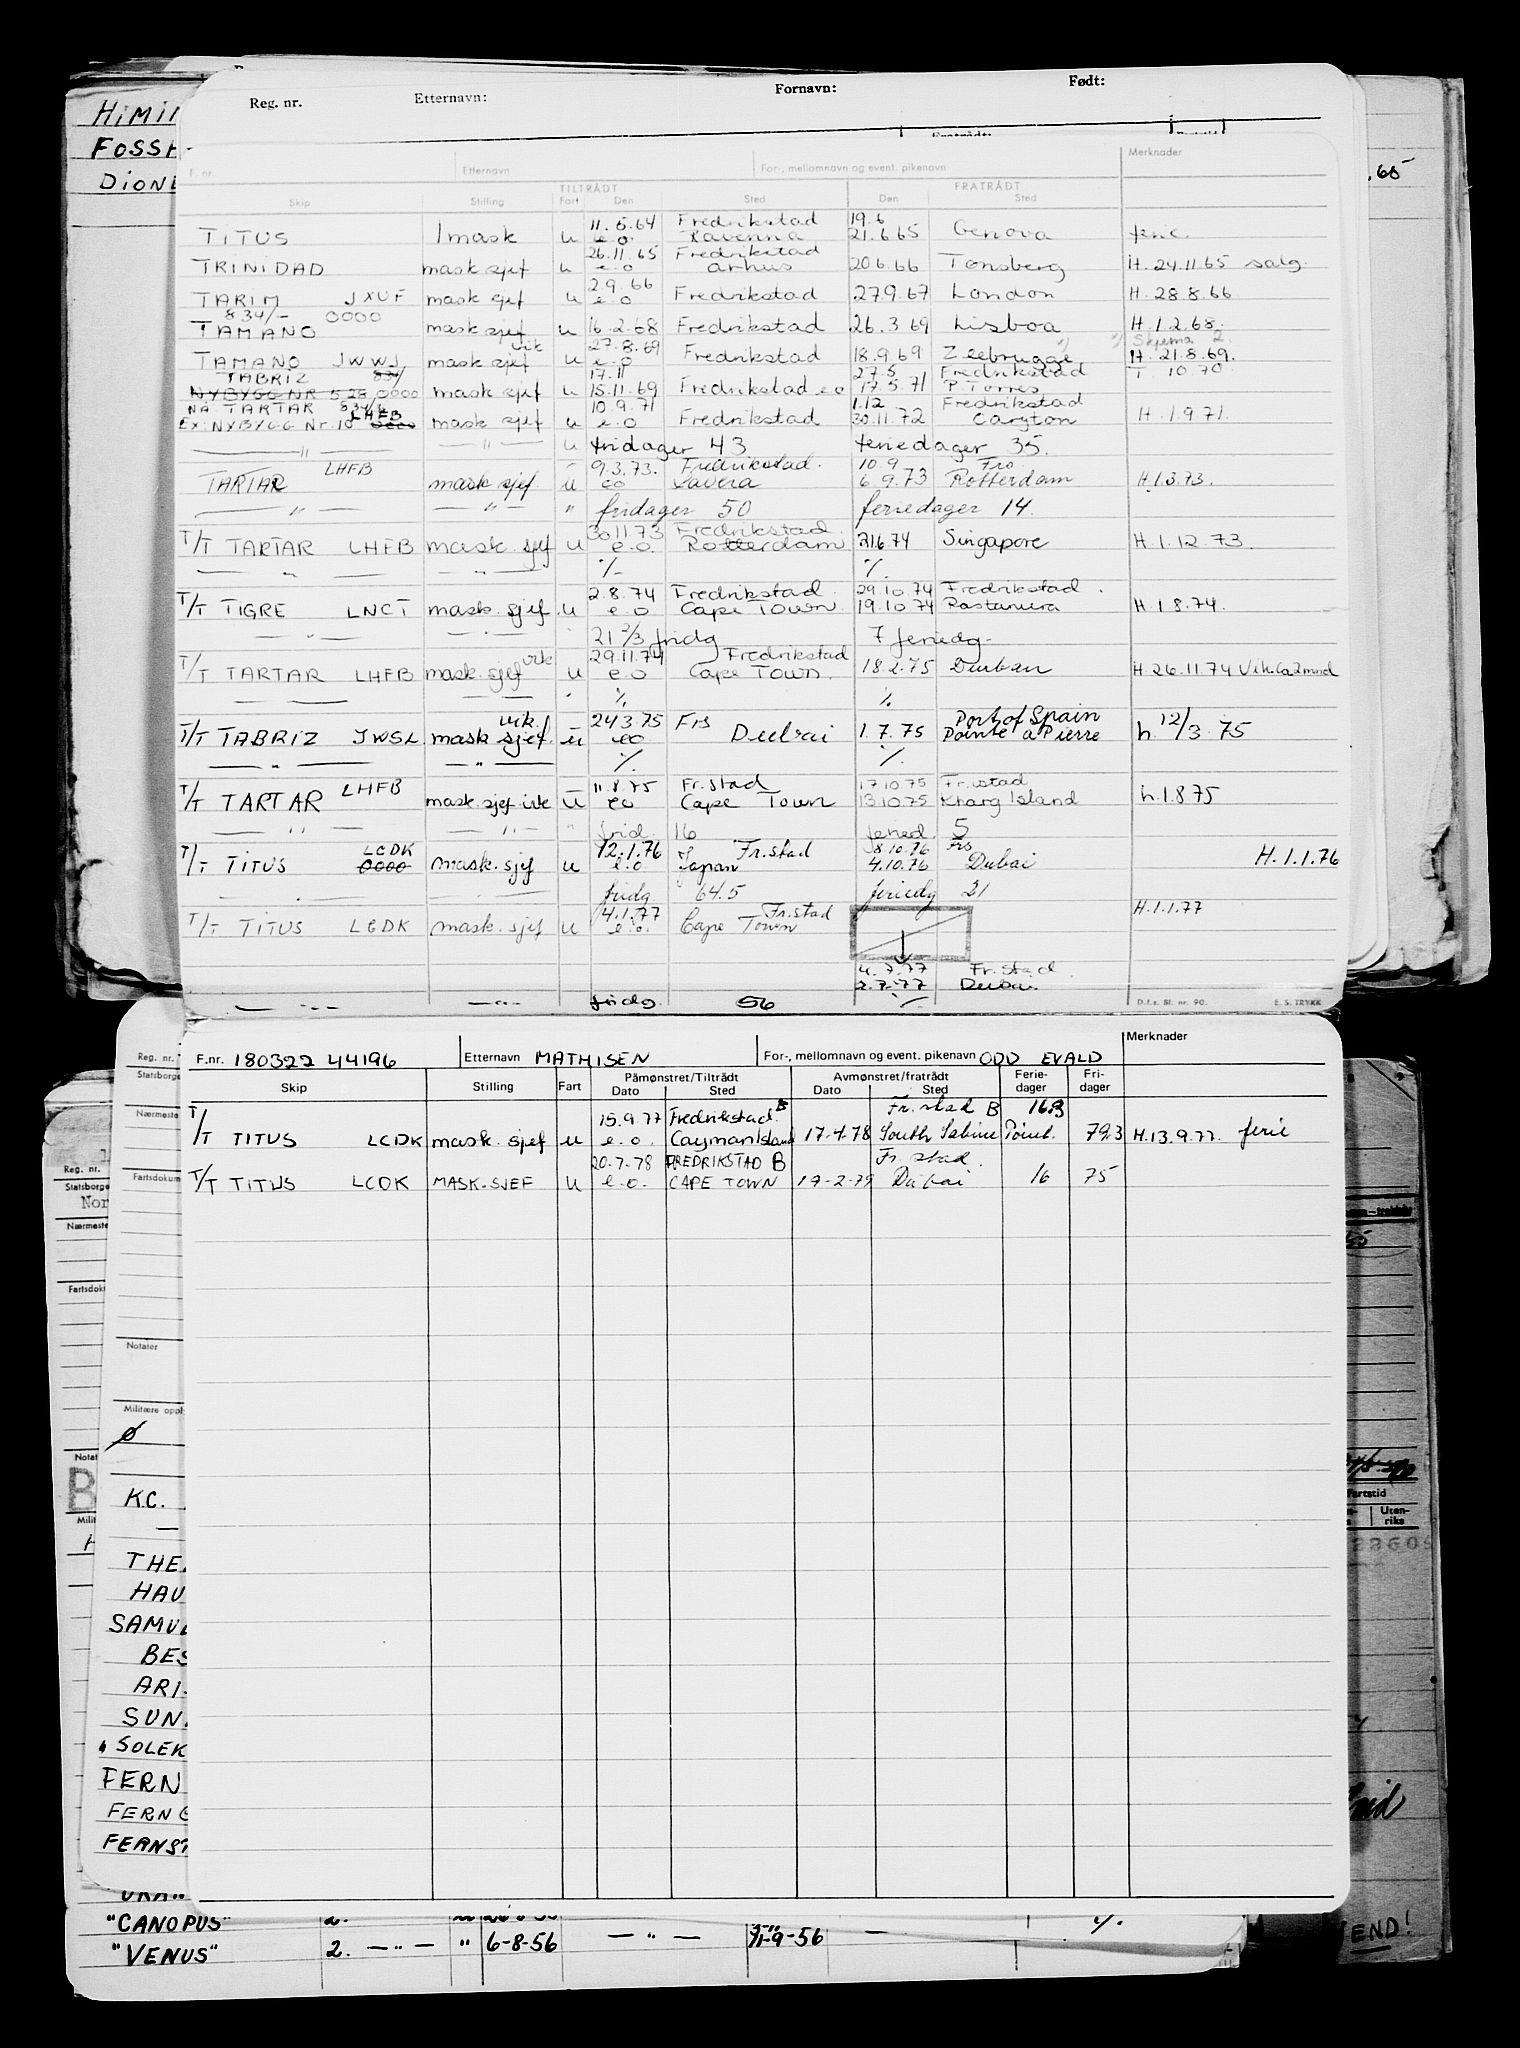 Reg. nr. Etternavn: Fornavn: Født:
HIMIN
FOSSE
DIONE
.65
F. nr. Etternavn For-, mellomnavn og event. pikenavn Merknader
TILTRÅDT FRATRÅDT
Skip Stilling Fart Den Sted Den Sted
11.5.64 Fredrikstad 19.6
TITUS 1mask u e.o. Ravenna 21.6.65 Genova ferie.
26.11.65 Fredrikstad
TRINIDAD mask sjef u e.o århus 20.6.66 Tønsberg H. 24.11.65 salg.
2.9.66
TARIM JXUF mask sjef u e.o Fredrikstad 27.9.67 London H. 28.8.66
834/- 0000
TAMANO mask sjef u 16.2.68 Fredrikstad 26.3 69 Lisboa H. 1.2.68.
vik 27.8.69 x) x) Skjema 2.
TAMANO JWWJ mask sjef u e.o Fredrikstad 18.9.69 Zeebrugge H. 21.8.69.
TABRIZ 834/ 17.11 27.5 Fredrikstad T. 10.70.
NYBYGG NR 528 0000 mask sjef u 15.11.69 Fredrikstad e.o 17.5.71 P. Torres
NÅ TARTAR 834/- LHFB 10.9.71 1.12 Fredrikstad
EX. NYBYGG Nr. 10 0000 mask sjef u e.o Fredrikstad 30.11.72 Caryton H. 1.9.71.
— " — — " — u fridager 43 feriedager 35.
LHFB 9.3.73. Fredrikstad. 10.9 Fro.
TARTAR mask sjef. u eo Lavera 6.9.73 Rotterdam H.1.3.73.
— " — — " — " fridager 50 feriedager 14.
30.11.73 Fredrikstad.
T/T TARTAR LHFB mask. sjef u e.o. Rotterdam 21.6.74 Singapore H. 1.12.73.
— " — — " — %. %.
2.8.74 Fredrikstad. 29.10.74 Fredrikstad.
T/T TIGRE LNCT mask. sjef. u e.o Cape Town. 19.10.74 Rastanura H. 1.8.74.
— " — — " — 21 2/3 fridg 7 feriedg.
vik 29.11.74 Fredrikstad
T/T TARTAR LHFB mask. sjef u e.o Cape Town. 18.2.75 Durban H. 26.11.74 Vik. Ca 2 mnd
— " — — " — %. %.
vik. 24.3.75 Frs Port of Spain
T/T TABRIZ JWSL mask sjef. u eo Dubai 1.7.75 Pointe a Pierre h. 12/3.75
— " — — " — %. %.
LHFB 11.8.75 Fr.stad 17.10.75 Fr.stad
T/T TARTAR mask. sjef. vik u eo Cape Town 13.10.75 Kharg Island h. 1.8.75
— " — — " — " frid. 16 feried. 5
LCDK 12.1.76 Fr.stad 8.10.76 Frs
T/T TITUS 0000 mask. sjef u e.o. Japan 4.10.76 Dubai H. 1.1.76
fridg 64.5 feriedg 21
4.1.77 Fr.stad H.1.1.77
T/T TITUS LCDK mask. sjef u e.o. Cape Town
4.7.77 Fr.stad.
2.7.77 Dubai.
— " — — " — fridg. 56 %
D.f.s. Sl. nr. 90. E. S. TRYKK
F.nr. 180322 44196 Etternavn MATHISEN For-, mellomnavn og event. pikenavn ODD EVALD Merknader
Påmønstret/Tiltrådt Avmønstret/fratrådt Ferie- Fri-
Skip Stilling Fart Dato Sted Dato Sted dager dager
15.9.77 Fredrikstad B Fr.stad B 16.3
T/T TITUS LCDK mask. sjef u e.o. Cayman Island 17.4.78 South Sabine Point. 79.3 H.13.9.77. ferie
20.7.78 FREDRIKSTAD B Fr. stad.
T/T TITUS LCDK MASK.SJEF u e.o. CAPE TOWN 17.2.79 Dubai 16 75
Reg. nr.
Statsborge
Nærmeste
Fartsdokum
Notater
Militære oppl
Ø
K.C.
THE
HAU
SAMUE
BES
ARI
SUN
SOLEK
FERN
FERN
FERNST
Reg. nr.
Statsborge
Nor
Nærmeste
Fartsdoku
Notat
B
Milit
Fartstid
Uten-
riks
"CANOPUS" 2. %.
"VENUS" 2. — " — " 6-8-56 — " — -9-56 —
END!